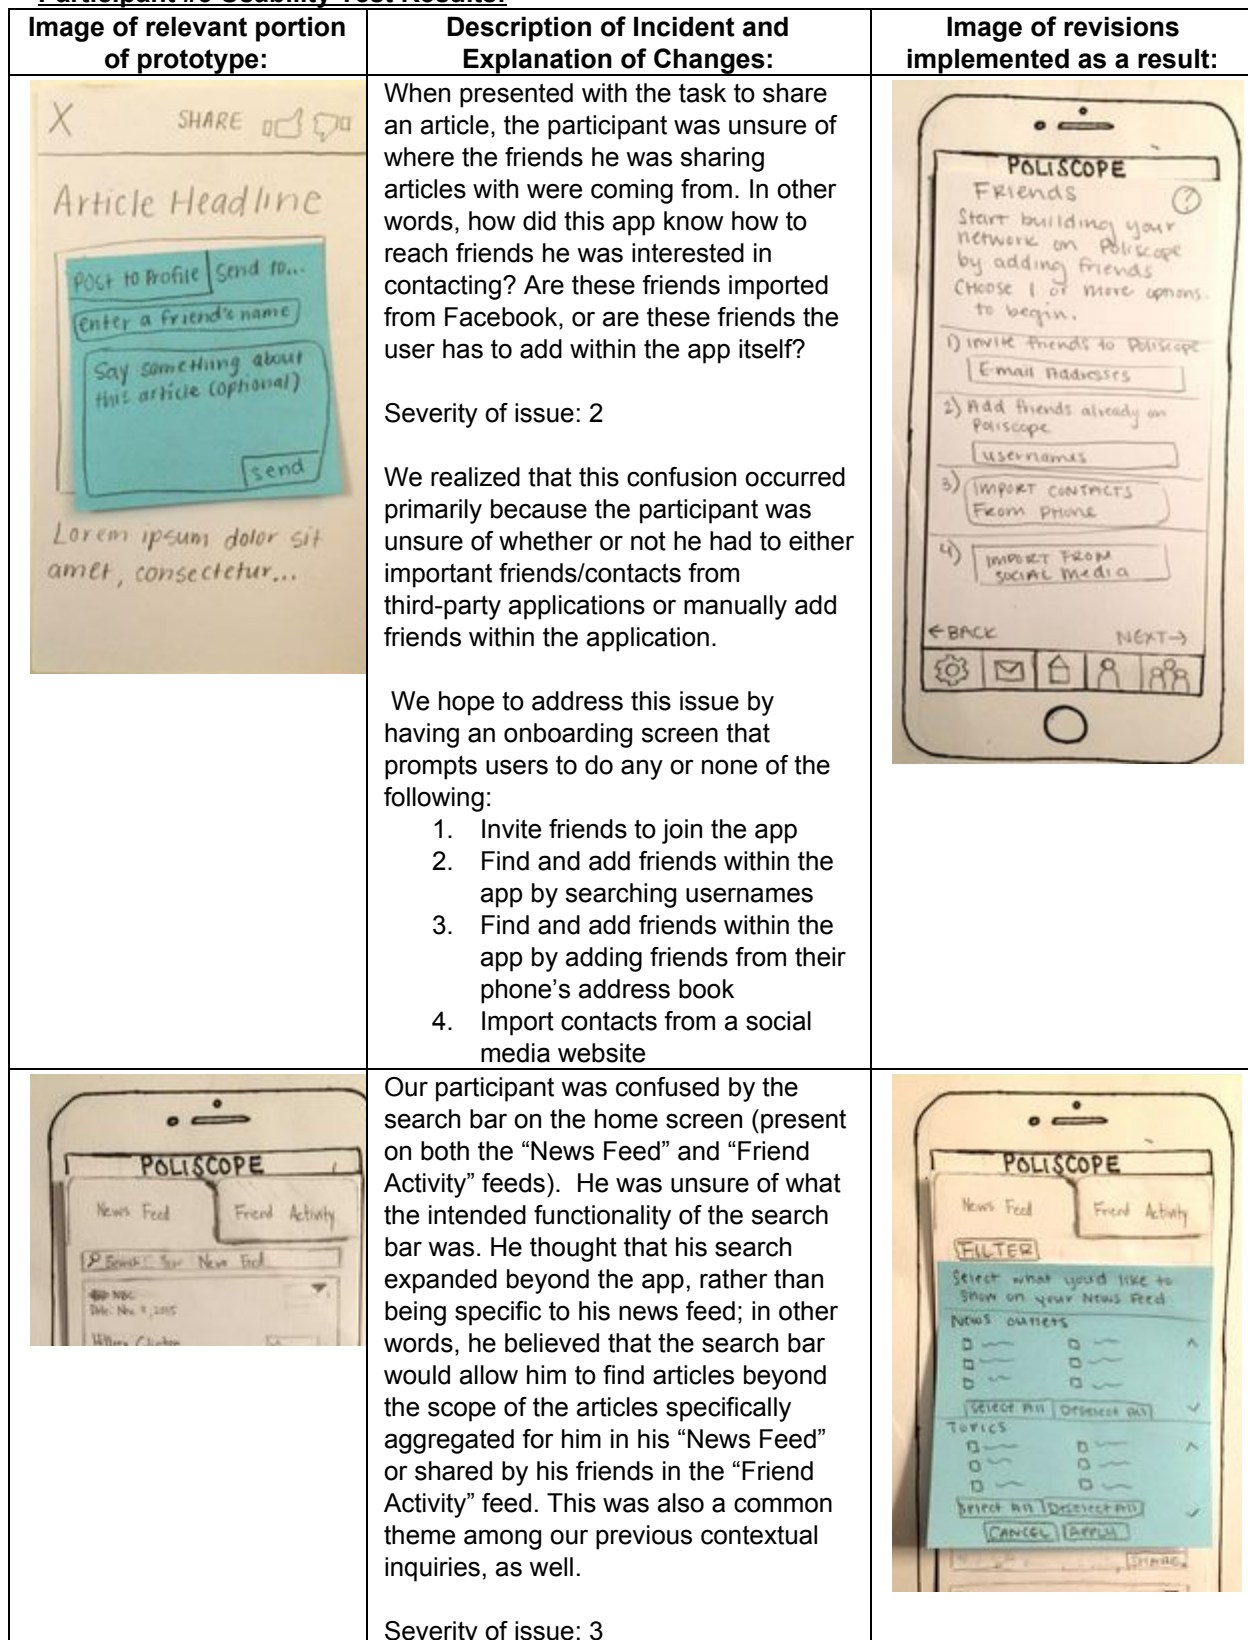 Image of relevant portion
of prototype:
Description of Incident and
Explanation of Changes:
Image of revisions
implemented as a result:
X SHARE
Article Headline
Post to Profile Send to...
enter a friend's name
Say something about
this article (optional)
send
Lorem ipsum dolor sit
amet, consectetur...
When presented with the task to share
an article, the participant was unsure of
where the friends he was sharing
articles with were coming from. In other
words, how did this app know how to
reach friends he was interested in
contacting? Are these friends imported
from Facebook, or are these friends the
user has to add within the app itself?
Severity of issue: 2
We realized that this confusion occurred
primarily because the participant was
unsure of whether or not he had to either
important friends/contacts from
third-party applications or manually add
friends within the application.
We hope to address this issue by
having an onboarding screen that
prompts users to do any or none of the
following:
1. Invite friends to join the app
2. Find and add friends within the
app by searching usernames
3. Find and add friends within the
app by adding friends from their
phone's address book
4. Import contacts from a social
media website
POLISCOPE
Friends ?
Start building your
network on Poliscope
by adding friends
Choose 1 or more options
to begin.
1) Invite friends to Poliscope
E-mail Addresses
2) Add friends already on
Poliscope
usernames
3) IMPORT CONTACTS
FROM PHONE
4) IMPORT FROM
SOCIAL Media
←BACK NEXT→
POLISCOPE
News Feed Friend Activity
Search News Feed
NBC
Date: Nov 2015
Hillary Clinton
Our participant was confused by the
search bar on the home screen (present
on both the “News Feed” and “Friend
Activity” feeds). He was unsure of what
the intended functionality of the search
bar was. He thought that his search
expanded beyond the app, rather than
being specific to his news feed; in other
words, he believed that the search bar
would allow him to find articles beyond
the scope of the articles specifically
aggregated for him in his “News Feed”
or shared by his friends in the “Friend
Activity” feed. This was also a common
theme among our previous contextual
inquiries, as well.
Severity of issue: 3
POLISCOPE
News Feed Friend Activity
FILTER
Select what you'd like to
show on your News Feed
News outlets
Select All Deselect All
Topics
Select All Deselect All
CANCEL APPLY
SHARE